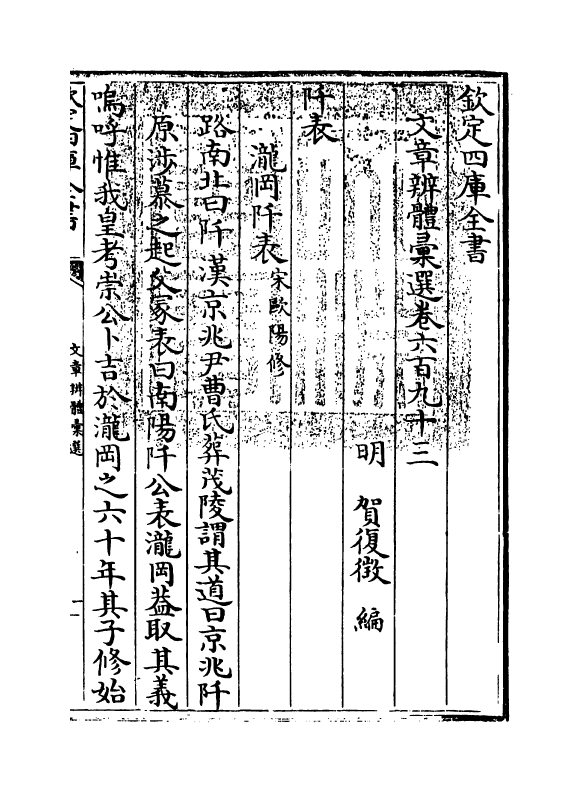 欽定四庫全書
文章辨體彚選卷六百九十三
明 賀復徵 編
阡表
瀧岡阡表宋歐陽修
路南北曰阡漢京兆尹曹氏葬茂陵謂其道曰京兆阡
原涉慕之起父冢表曰南陽阡公表瀧岡葢取其義
嗚呼惟我皇考崇公卜吉於瀧岡之六十年其子修始
文章辨體彚選
一